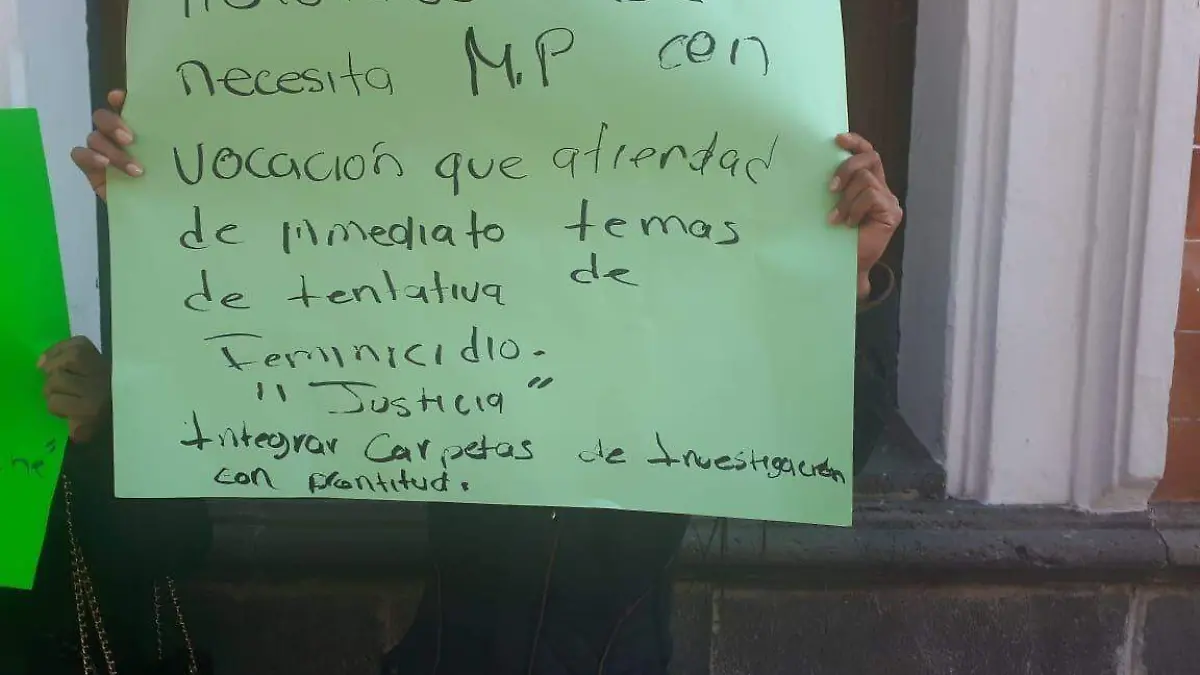 necesita M.P con
vocación que atiendad
de inmediato temas
de tentativa de
Feminicidio.
"Justicia"
Integrar Carpetas de Investigación
con prontitud.